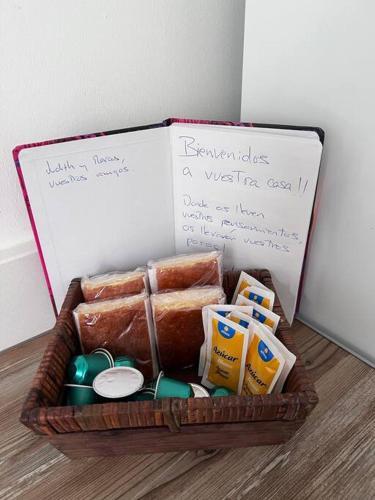 Judith y Marcos,
vuestros amigos.
Bienvenidos
a vuesTra casa!!
Donde os lleven
vuestros pensamientos,
os llevarán vuestros
pasos!
Azúcar
Azúcar